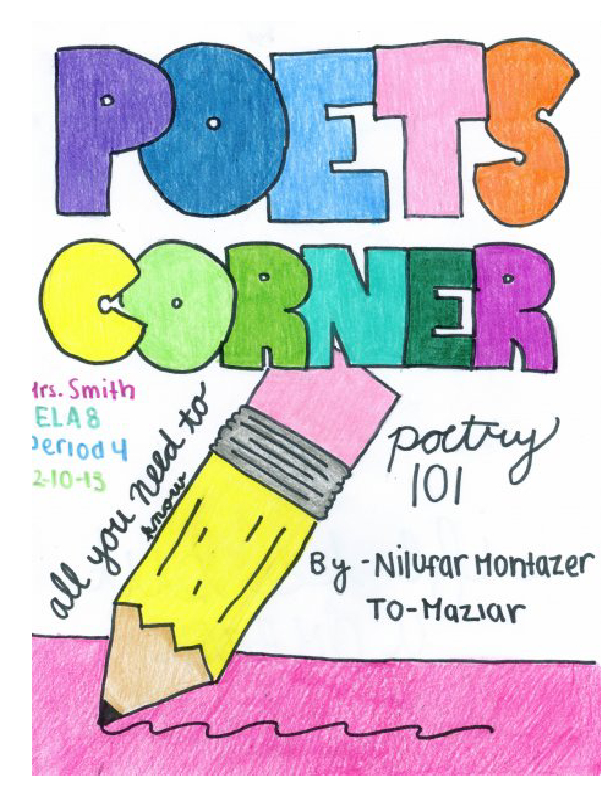 POETS
CORNER
Mrs. Smith
ELA8
Period 4
2-10-13
all you need to
know
poetry
101
By - Nilufar Montazer
To-Maziar